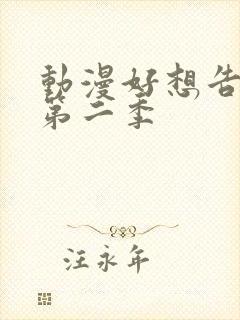 動漫好想告
第二季
汪永年